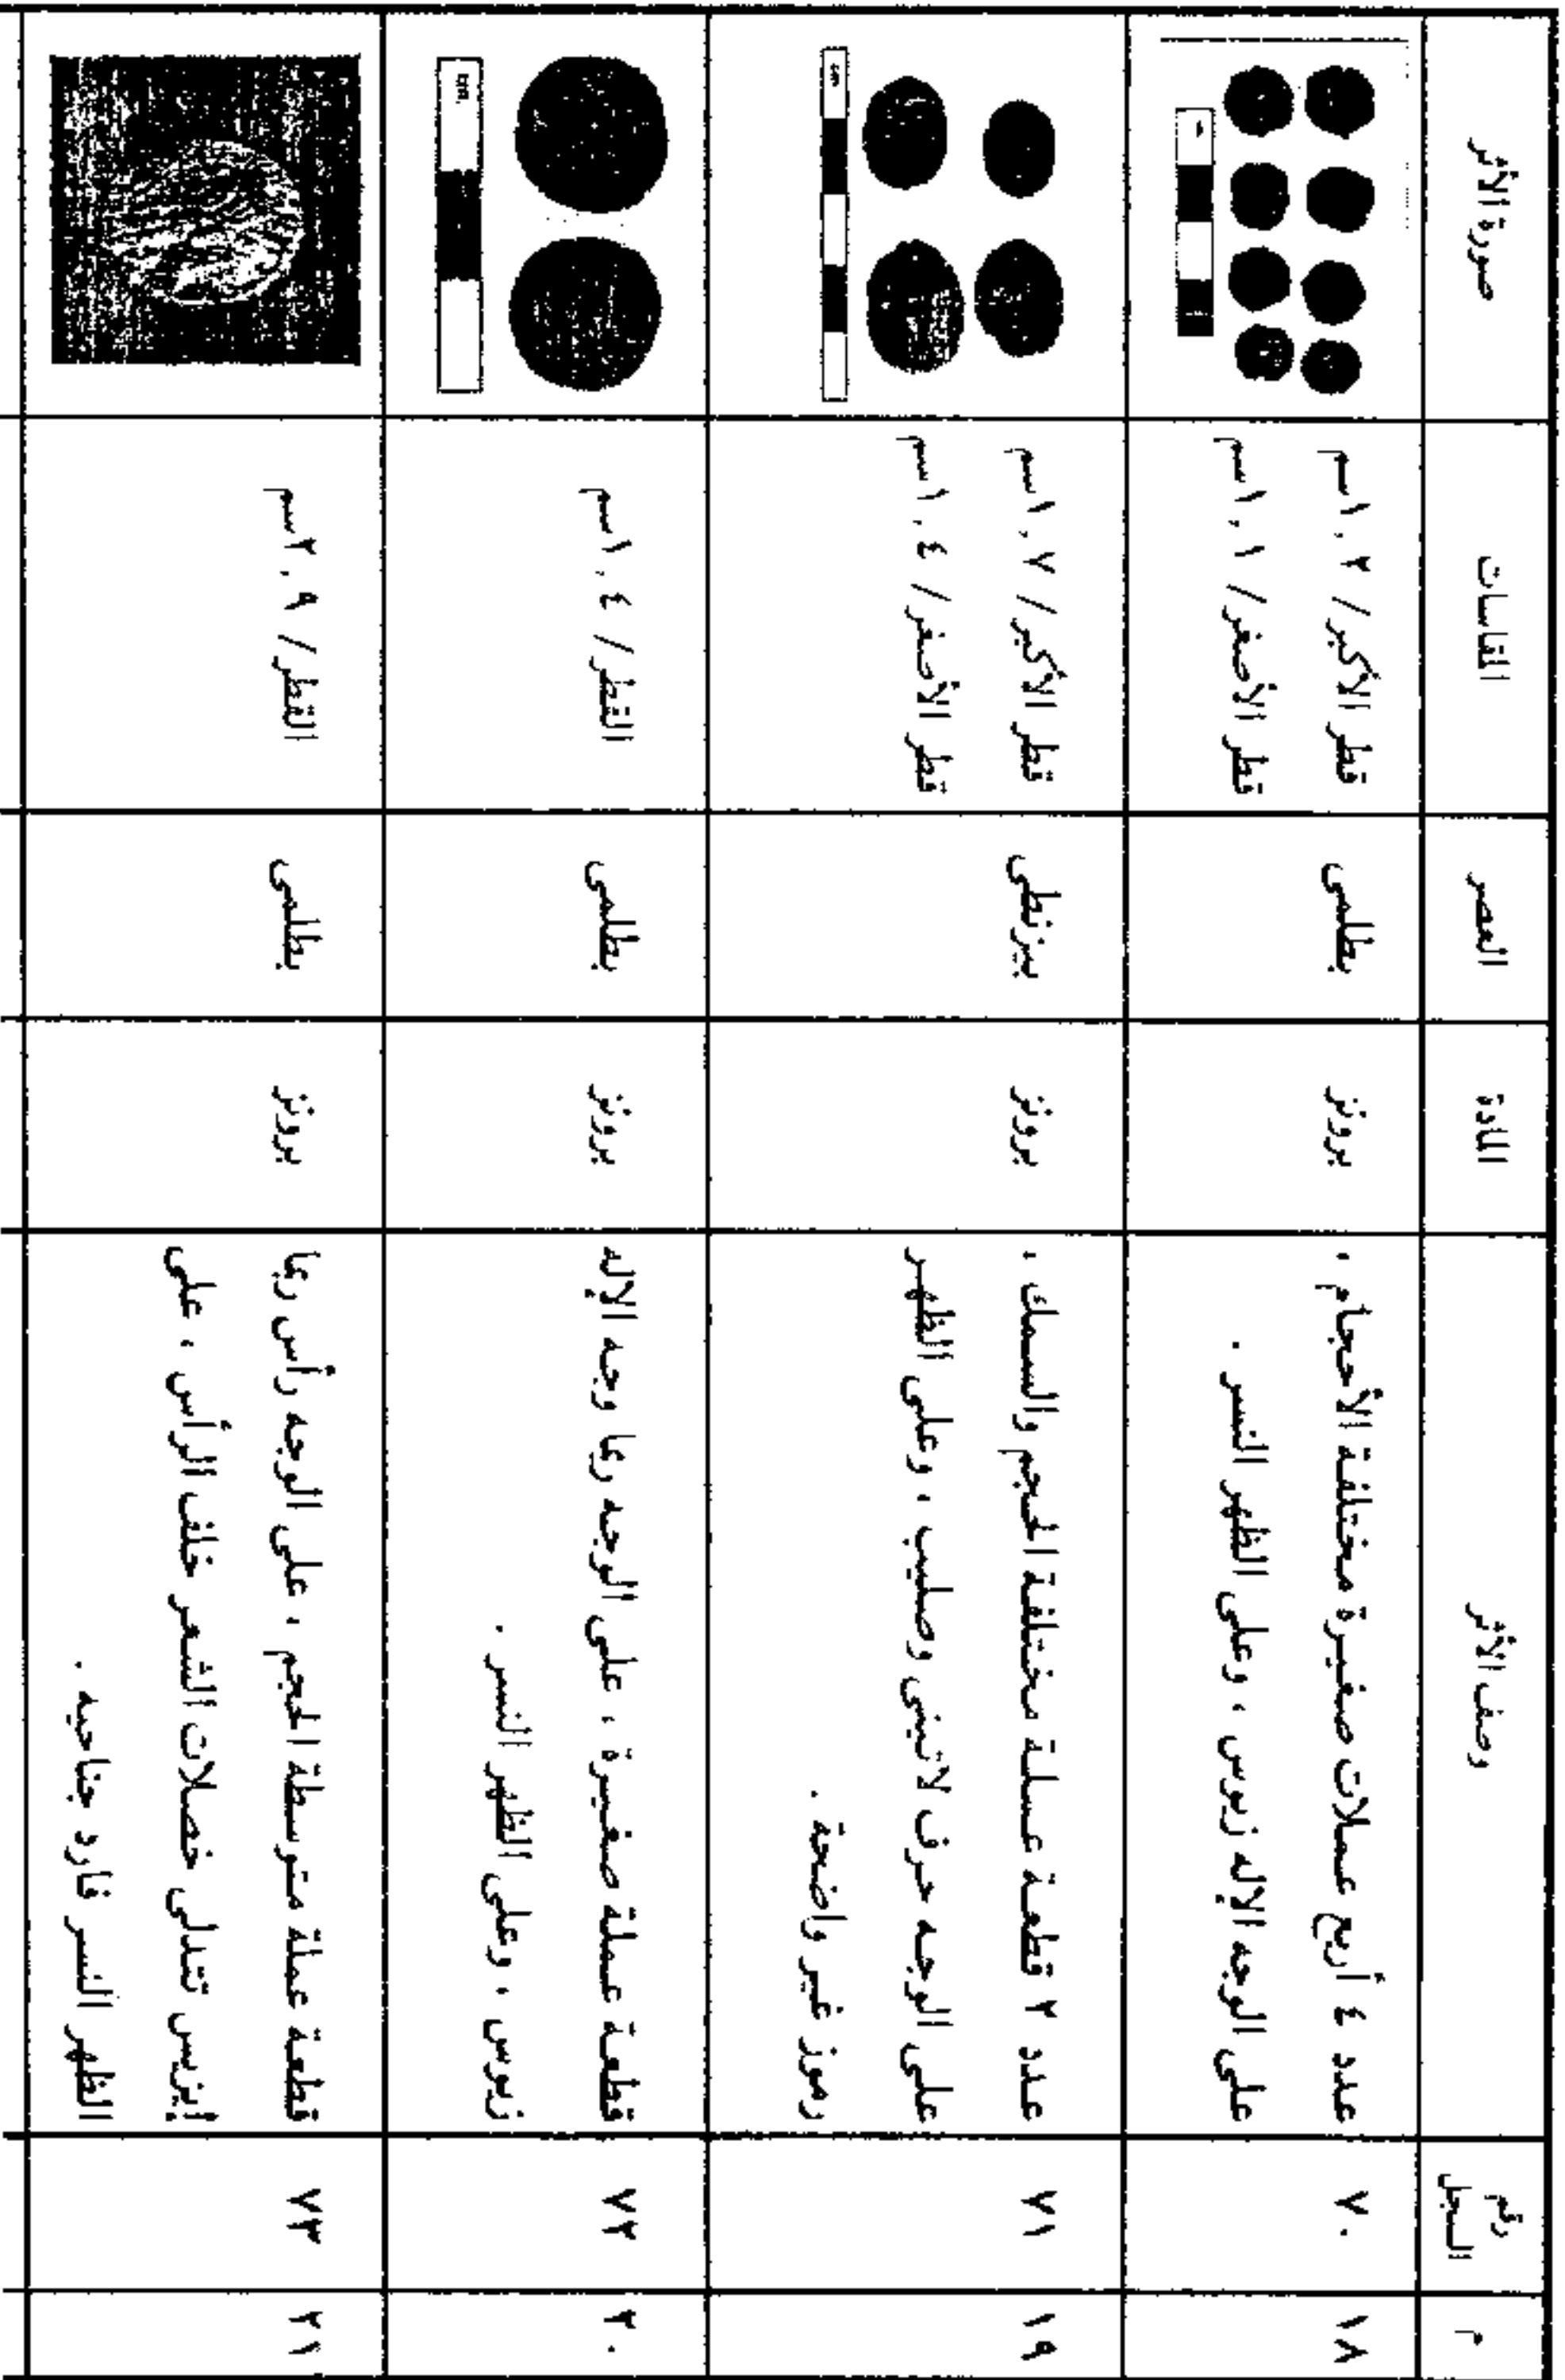 م
رقم السجل
وصف الأثر
المادة
العصر
المقاسات
صورة الأثر
١٨
٧٠
عدد ٤ أربع عملات صغيرة مختلفة الأحجام .
على الوجه الإله زيوس ، وعلى الظهر النسر .
برونز
بطلمى
قطر الأكبر / ١,٢سم
قطر الأصغر / ١,١سم
١٩
٧١
عدد ٢ قطعة عملة مختلفة الحجم والسمك .
على الوجه حرف لاتينى وصليب ، وعلى الظهر
رموز غير واضحة .
برونز
بيزنطى
قطر الأكبر / ١,٧سم
قطر الأصغر / ١,٤سم
cm
٢٠
٧٢
قطعة عملة صغيرة ، على الوجه ربما وجه الإله
زيوس ، وعلى الظهر النسر .
برونز
بطلمى
القطر / ١,٤سم
cm.
٢١
٧٣
قطعة عملة متوسطة الحجم ، على الوجه رأس ربما
إيزيس تتدلى خصلات الشعر خلف الرأس ، على
الظهر النسر فارد جناحيه .
برونز
بطلمى
القطر / ٢,٩سم